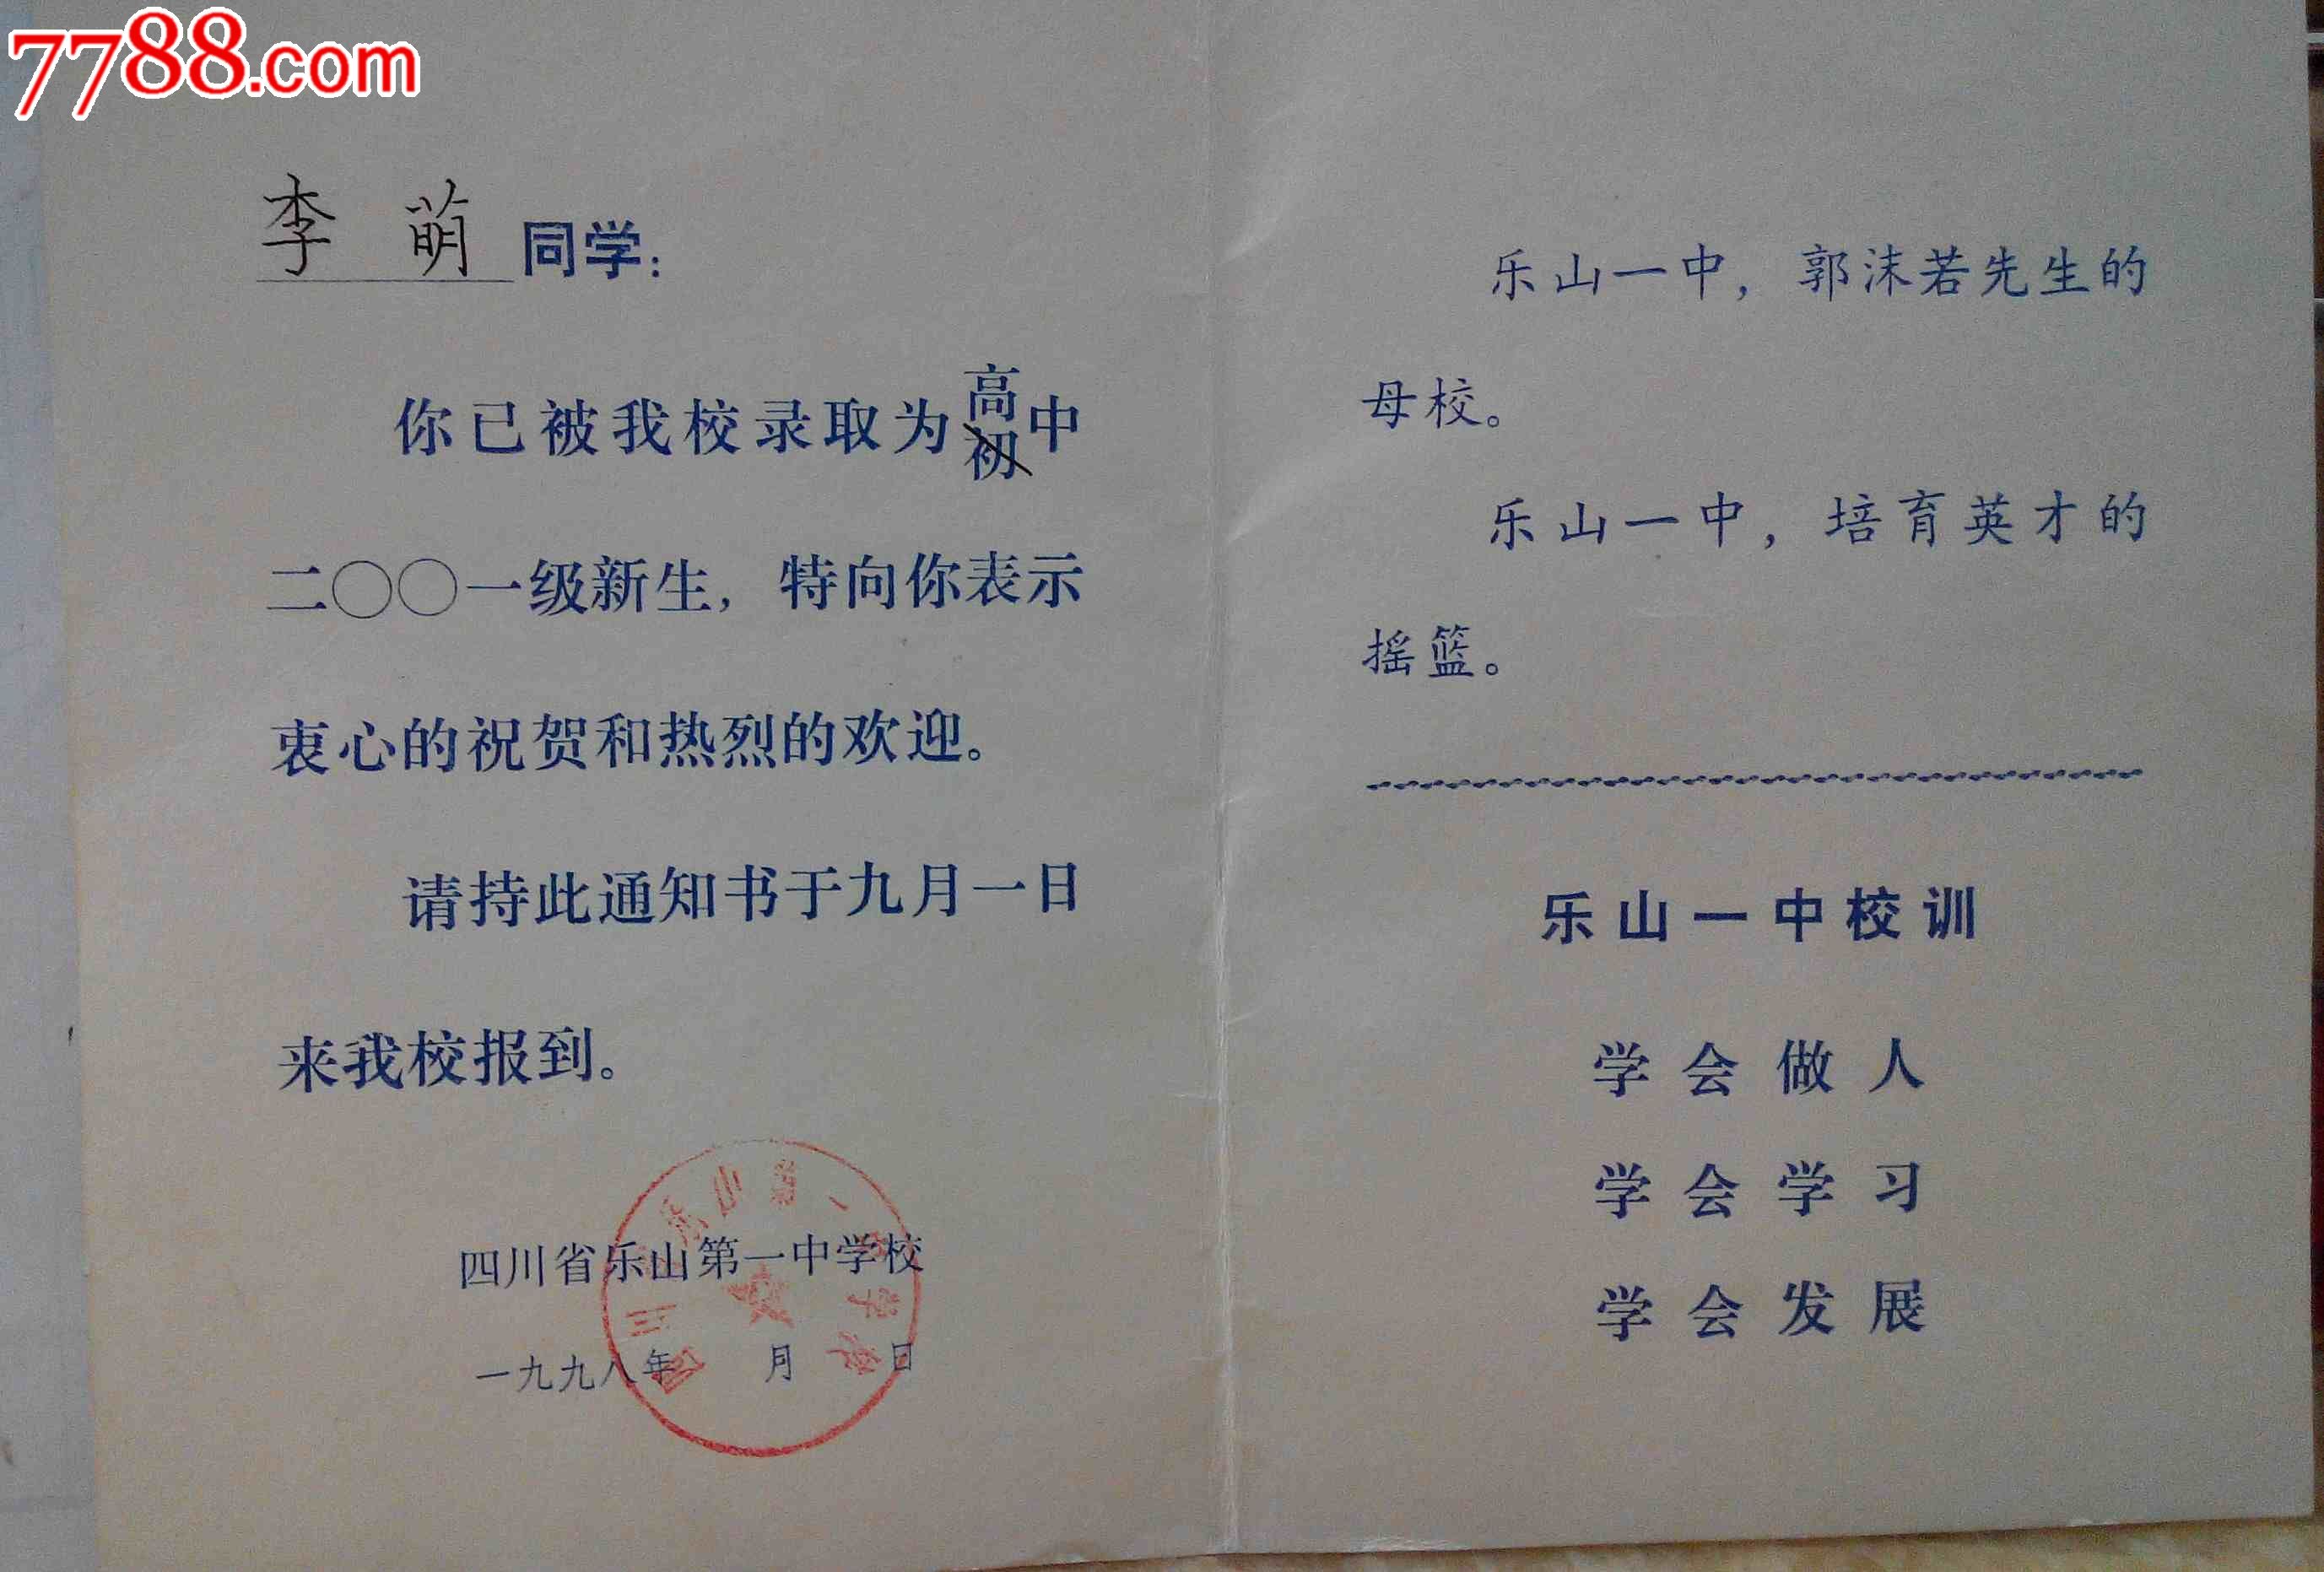 7788.com
李 萌 同学：
你已被我校录取为高初中
二〇〇一级新生，特向你表示
衷心的祝贺和热烈的欢迎。
请持此通知书于九月一日
来我校报到。
四川省乐山第一中学校
一九九八年 月 日
四川省乐山第一中学校
乐山一中，郭沫若先生的
母校。
乐山一中，培育英才的
摇篮。
乐山一中校训
学会做人
学会学习
学会发展